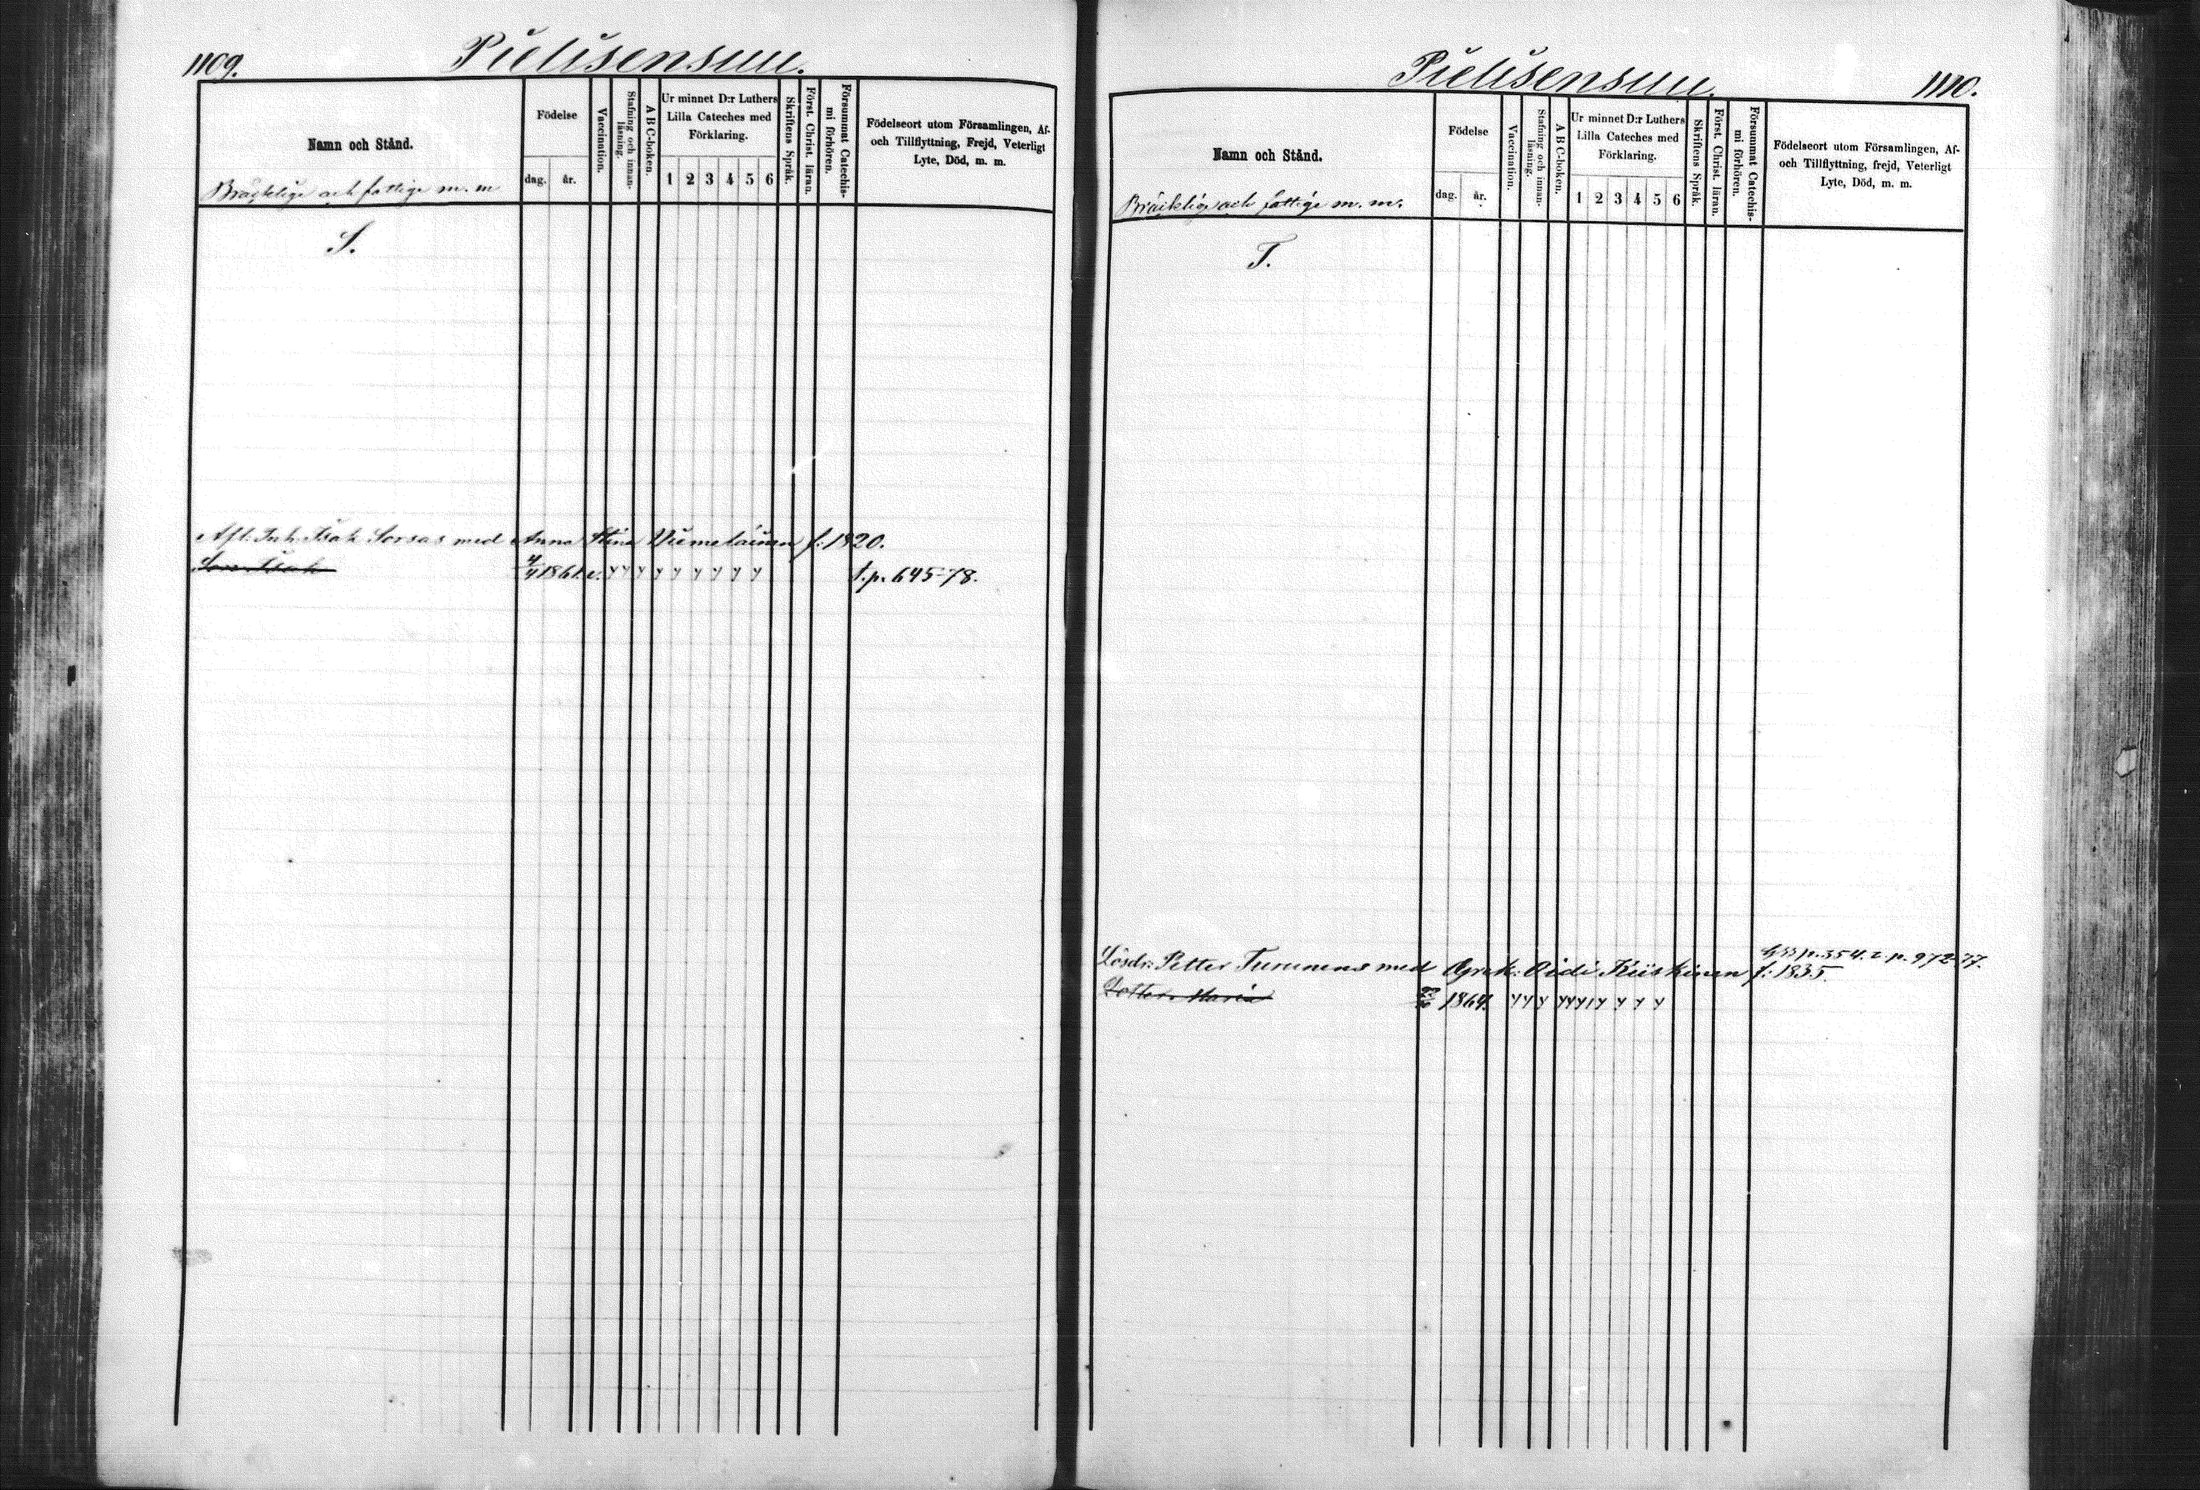 1109.
Pielisensuu.
Namn och Stånd.
Bräcklige och fattige m. m
Födelse
dag.
år.
Vaccination.
Stafning och innan-
läsning.
A B C-boken.
Ur minnet D:r Luthers
Lilla Cateches med
Förklaring.
1 2 3 4 5 6
Skriftens Språk.
Först. Christ. läran.
Försummat Catechis-
mi förhören.
Födelseort utom Församlingen, Af-
och Tillflyttning, Frejd, Veterligt
Lyte, Död, m. m.
S.
Afl. Inh. Isak Sorsas med Anna Stina Viemeläinen f. 1820.
Son Isak 4/4 1861. v. t.p. 645-78.
Pielisensuu.
1110.
Namn och Stånd.
Bräcklige och fattige m. m.
Födelse
dag.
år.
Vaccination.
Stafning och innan-
läsning.
A B C-boken.
Ur minnet D:r Luthers
Lilla Cateches med
Förklaring.
1 2 3 4 5 6
Skriftens Språk.
Först. Christ. läran.
Försummat Catechis-
mi förhören.
Födelseort utom Församlingen, Af-
och Tillflyttning, frejd, Veterligt
Lyte, Död, m. m.
T.
p. 354. p. 972-77.
Lösdr. Petter Turunens med Kiiskinen f. 1835.
Dotter Maria 1864.